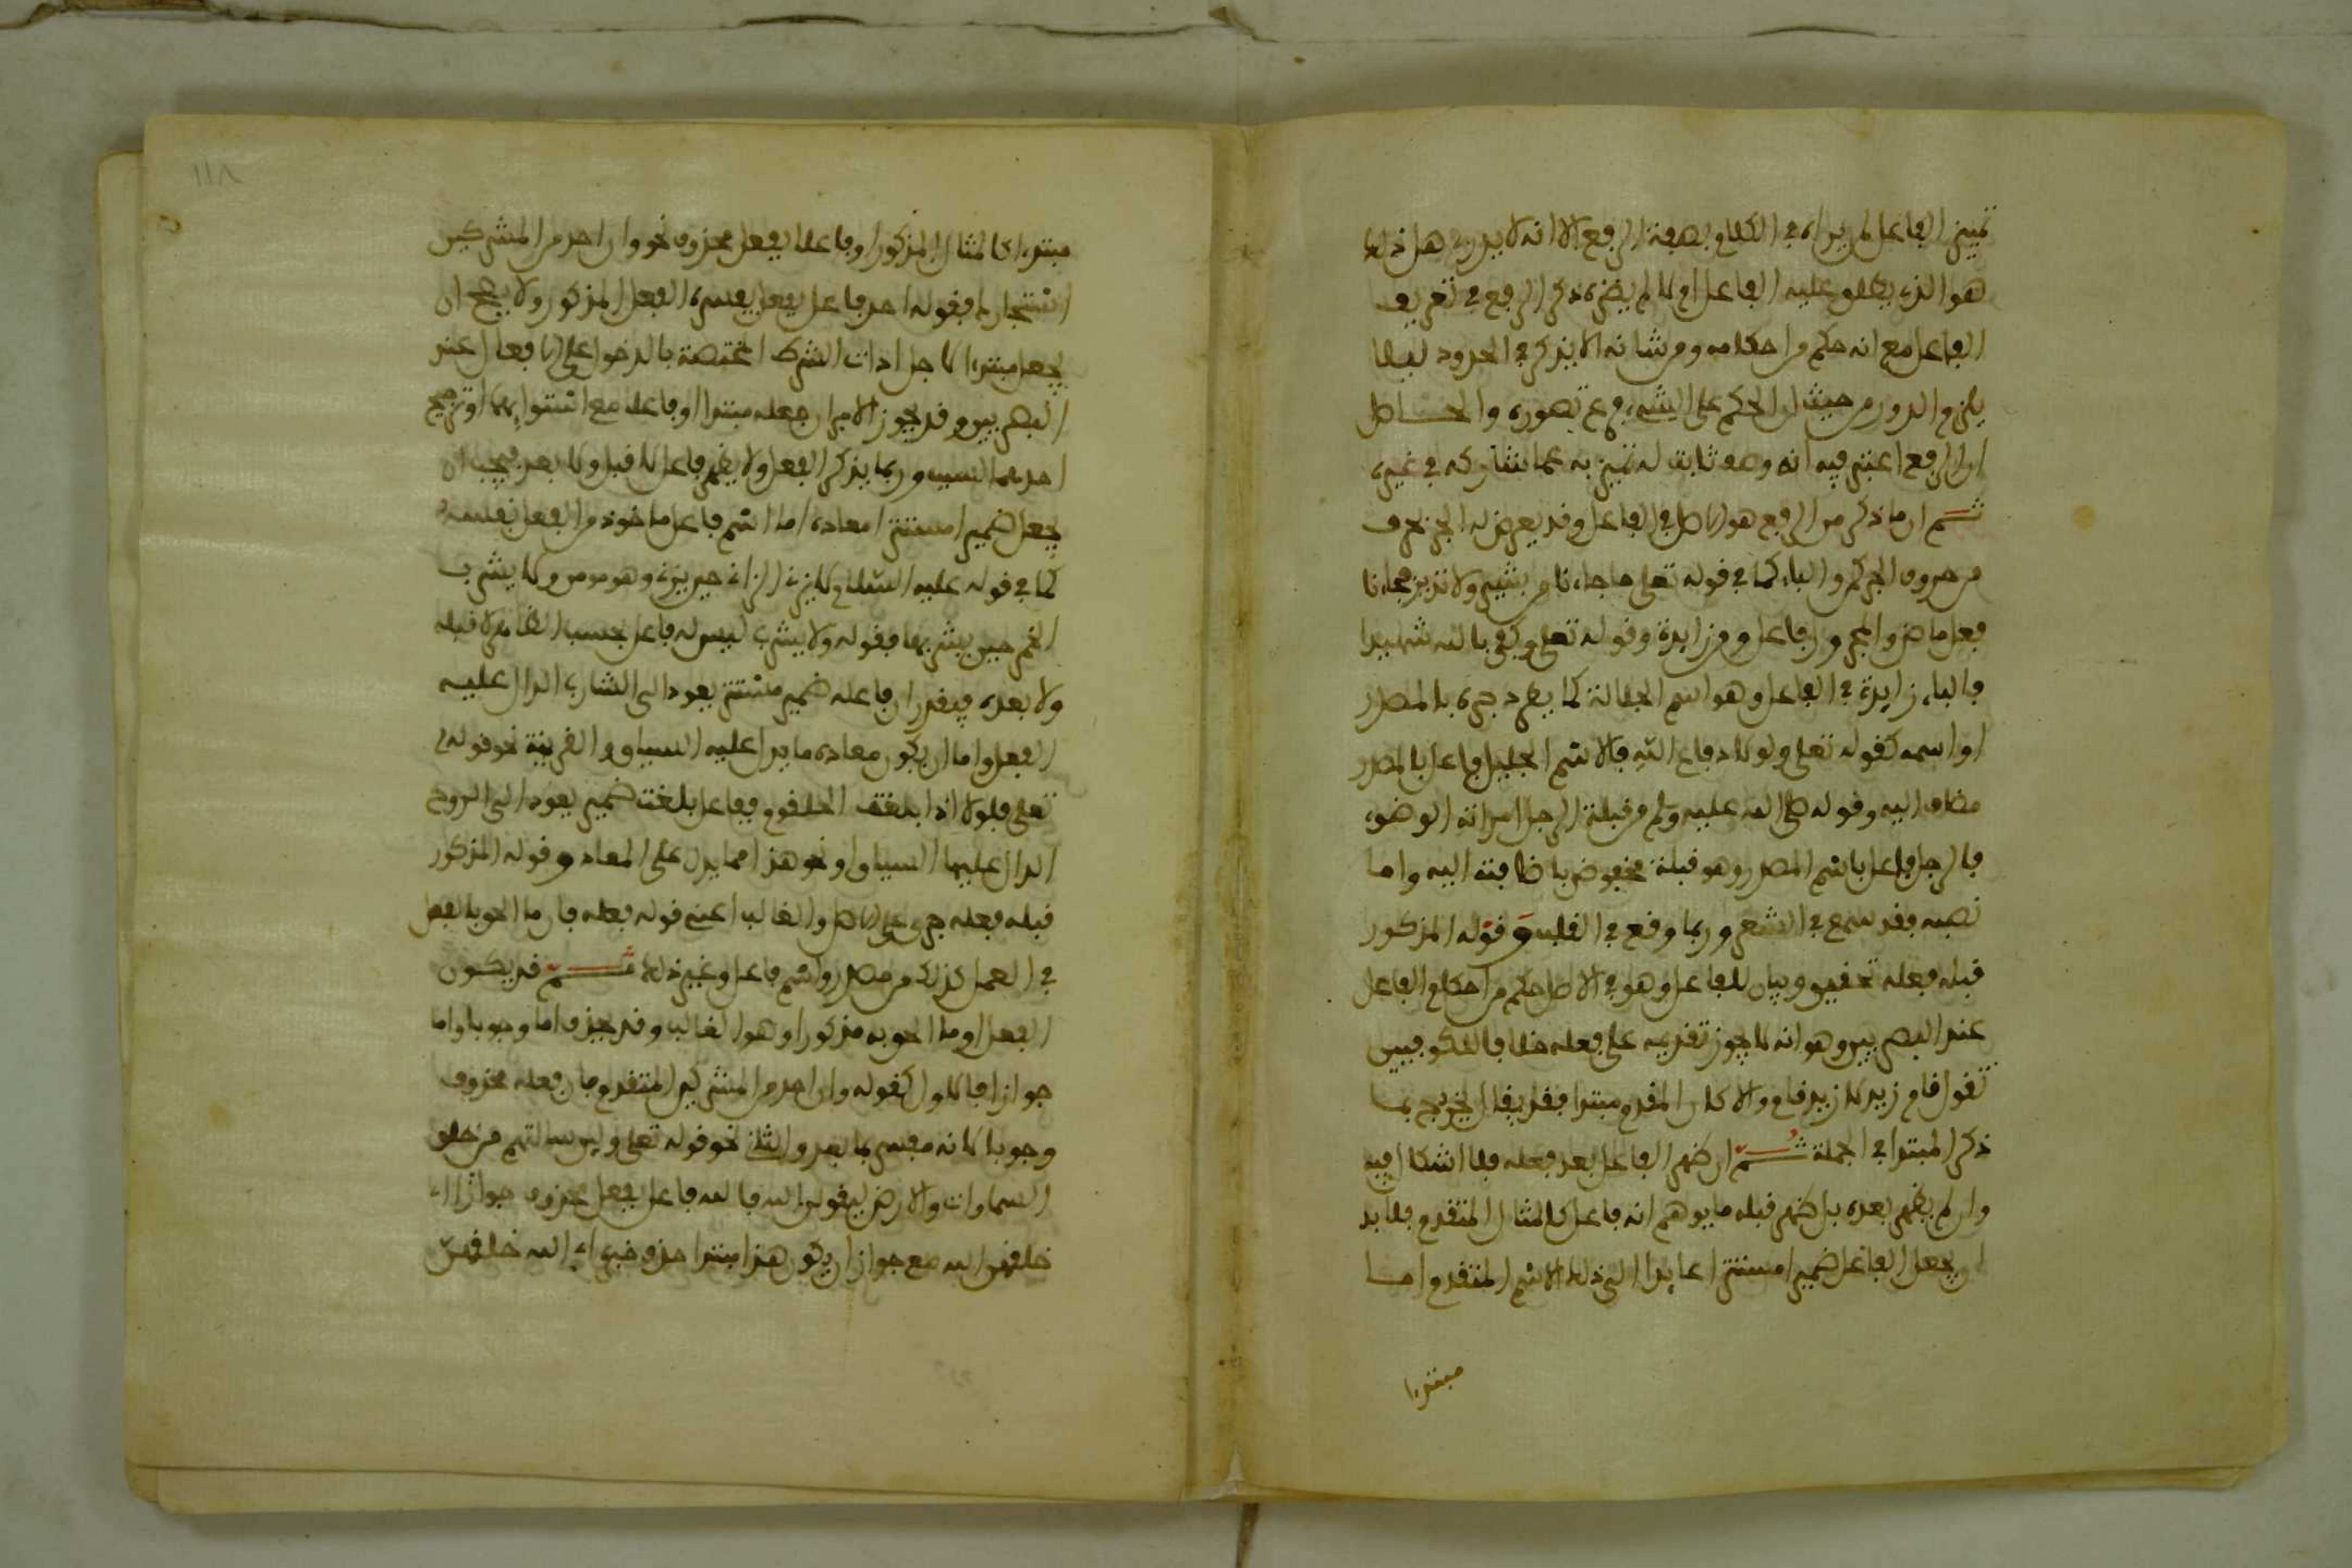 تمييز الفاعل لمن يراه في الكلام بصفة الرفع الا انه لا يدري هل ذلك
هو الذي يطلق عليه الفاعل ام لا لم يضره ذكر الرفع في تعريف
الفاعل مع انه حكم من احكامه ومن شانه الا يذكر في الحدود ليلا
يلزم الدور من حيث ان الحكم على الشيء فرع تصوره والحاصل
ان الرفع اعتبر فيه انه وصف ثابت له تميز به عما يشاركه في غيره
ثم ان ما ذكر من الرفع هو الاصل في الفاعل وقد يعرض له الجر بحرف
من حروف الجر كمن والباء كما في قوله تعلى ما جاءنا من بشير ولا نذير فجاءنا
فعل ماض والمجرور فاعل ومن زايدة وقوله تعلى وكفى بالله شهيدا
فالباء زايدة في الفاعل وهو اسم الجلالة كما يطرد جره بالمصدر
او اسمه كقوله تعلى ولولا دفاع الله فالاسم الجليل فاعل بالمصدر
مضاف اليه وقوله صلى الله عليه وسلم من قبلة الرجل امراته الوضوء
فالرجل فاعل باسم المصدر وهو قبلة مخفوض باضافته اليه واما
نصبه فقد سمع في الشعر وربما وقع في القلب وقوله المذكور
قبله فعله تحقيق وبيان للفاعل وهو في الاصل حكم من احكام الفاعل
عند البصريين وهو انه لا يجوز تقديمه على فعله خلافا للكوفيين
تقول قام زيد لا زيد قام والا كان المقدم مبتدا فقد يقال الخروج بما
ذكر المبتدا في الجملة ثم ان ظهر الفاعل بعد فعله فلا اشكال فيه
وان لم يظهر بعده بل ظهر قبله ما يوهم انه فاعل كالمثال المتقدم فلا بد
ان يجعل الفاعل ضميرا مستترا عايدا الى ذلك الاسم المتقدم اما
مبتدا
١١٨
مبتدا كالمثال المذكور او فاعلا لفعل محذوف نحو وان احد من المشركين
استجارك فقوله احد فاعل بفعل يفسره الفعل المذكور ولا يصح ان
يجعل مبتدا لاجل اذات الشرط المختصة بالدخول على الافعال عند
البصريين وقد يجوز الامران جعله مبتدا او فاعلا مع استوايهما او ترجيح
احدهما لسبب وربما يذكر الفعل ولا يظهر فاعل لا قبل ولا بعد فيجب ان
يجعل ضميرا مستترا معاده اما اسم فاعل ماخوذ من الفعل نفسه
كما في قوله عليه السلام لا يزني الزاني حين يزني وهو مومن ولا يشرب
الخمر حين يشربها فقوله ولا يشرب ليس له فاعل بحسب الظاهر لا قبله
ولا بعده فيقدر ان فاعله ضمير مستتر يعود الى الشارب الدال عليه
الفعل واما ان يكون معاده ما يدل عليه السياق والقرينة نحو قوله
تعلى فلولا اذا بلغت الحلقوم ففاعل بلغت ضمير يعود الى الروح
الدال عليها السياق او نحو هذا مما يدل على المعاد وقوله المذكور
قبله فعله جرى على الاصل والغالب اعني قوله فعله فان ما الحق بالفعل
في العمل كذلك من مصدر واسم فاعل وغير ذلك ثم قد يكون
الفعل او ما الحق به مذكورا وهو الغالب وقد يحذف اما وجوبا واما
جوازا فالاول كقوله وان احد من المشركين المتقدم فان فعله محذوف
وجوبا لانه مفسر بما بعد والثاني نحو قوله تعلى ولين سالتهم من خلق
السماوات والارض ليقولن الله فالله فاعل بفعل محذوف جوازا اي
خلقهن الله مع جواز ان يكون هذا مبتدا حذف خبره اي الله خلقهن